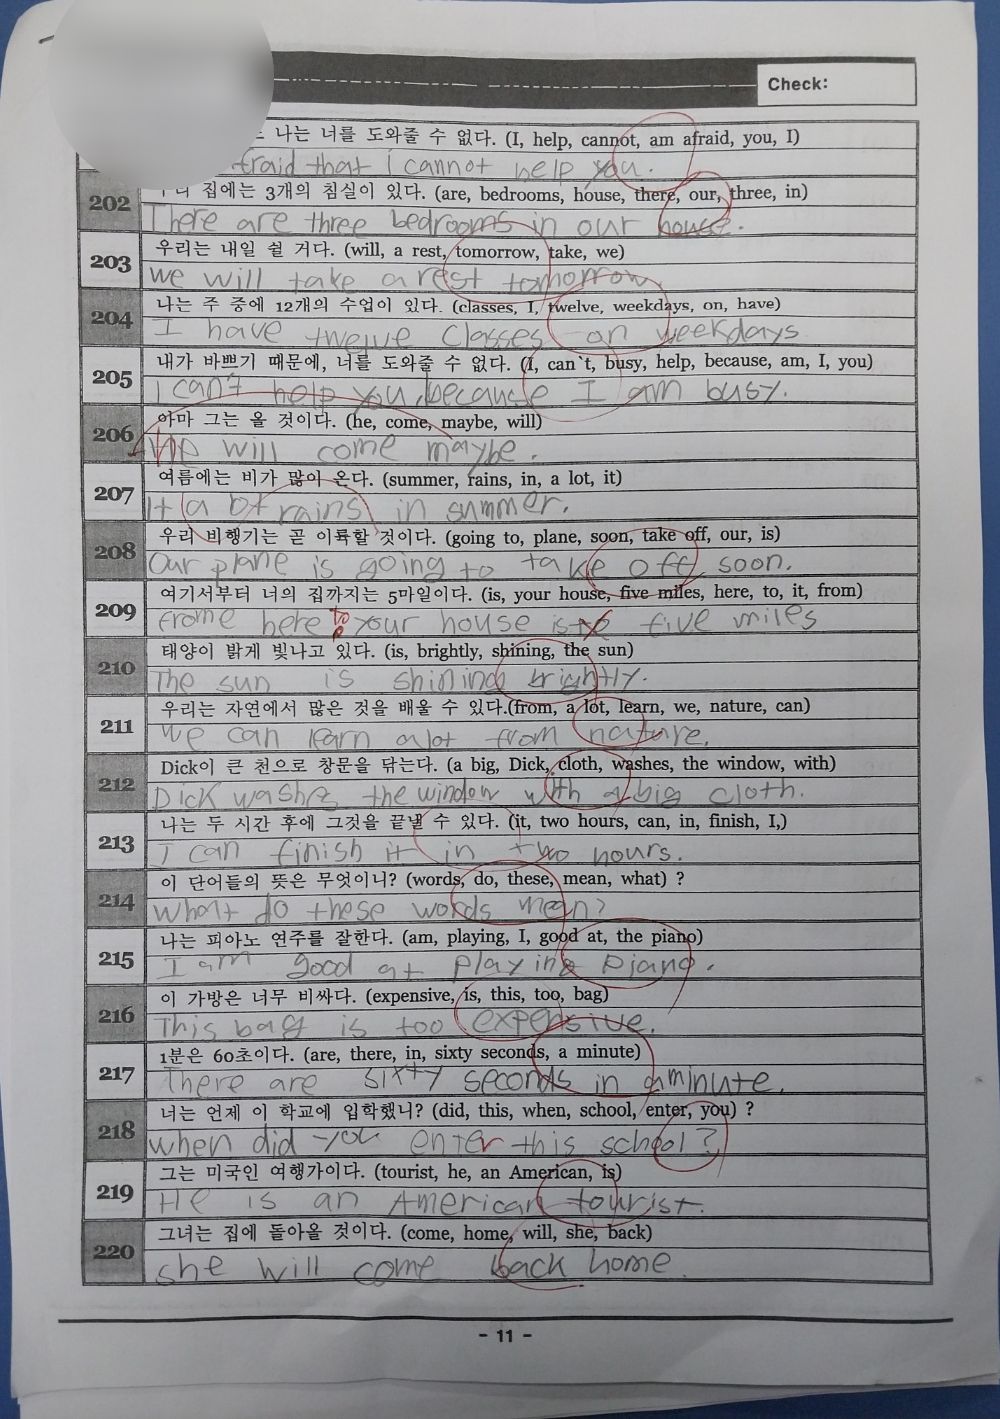 Check:
나는 너를 도와줄 수 없다. (I, help, cannot, am afraid, you, I)
fraid that i cannot help you.
202 집에는 3개의 침실이 있다. (are, bedrooms, house, there, our, three, in)
There are three bedrooms in our house.
203 우리는 내일 쉴 거다. (will, a rest, tomorrow, take, we)
we will take a rest tomorrow.
204 나는 주 중에 12개의 수업이 있다. (classes, I, twelve, weekdays, on, have)
I have twelve classes on weekdays
205 내가 바쁘기 때문에, 너를 도와줄 수 없다. (I, can`t, busy, help, because, am, I, you)
I can't help you, because I am busy.
206 아마 그는 올 것이다. (he, come, maybe, will)
He will come maybe.
207 여름에는 비가 많이 온다. (summer, rains, in, a lot, it)
It a lot rains in summer.
208 우리 비행기는 곧 이륙할 것이다. (going to, plane, soon, take off, our, is)
Our plane is going to take off soon.
209 여기서부터 너의 집까지는 5마일이다. (is, your house, five miles, here, to, it, from)
frome here to your house is five miles
210 태양이 밝게 빛나고 있다. (is, brightly, shining, the sun)
The sun is shining brightly.
211 우리는 자연에서 많은 것을 배울 수 있다.(from, a lot, learn, we, nature, can)
we can learn a lot from nature.
212 Dick이 큰 천으로 창문을 닦는다. (a big, Dick, cloth, washes, the window, with)
Dick washes the window with a big cloth.
213 나는 두 시간 후에 그것을 끝낼 수 있다. (it, two hours, can, in, finish, I,)
I can finish it in two hours.
214 이 단어들의 뜻은 무엇이니? (words, do, these, mean, what) ?
what do these words mean?
215 나는 피아노 연주를 잘한다. (am, playing, I, good at, the piano)
I am good at playing piano.
216 이 가방은 너무 비싸다. (expensive, is, this, too, bag)
This bag is too expensive.
217 1분은 60초이다. (are, there, in, sixty seconds, a minute)
There are sixty seconds in aminute.
218 너는 언제 이 학교에 입학했니? (did, this, when, school, enter, you) ?
when did you enter this school?
219 그는 미국인 여행가이다. (tourist, he, an American, is)
He is an American tourist.
220 그녀는 집에 돌아올 것이다. (come, home, will, she, back)
she will come back home.
- 11 -